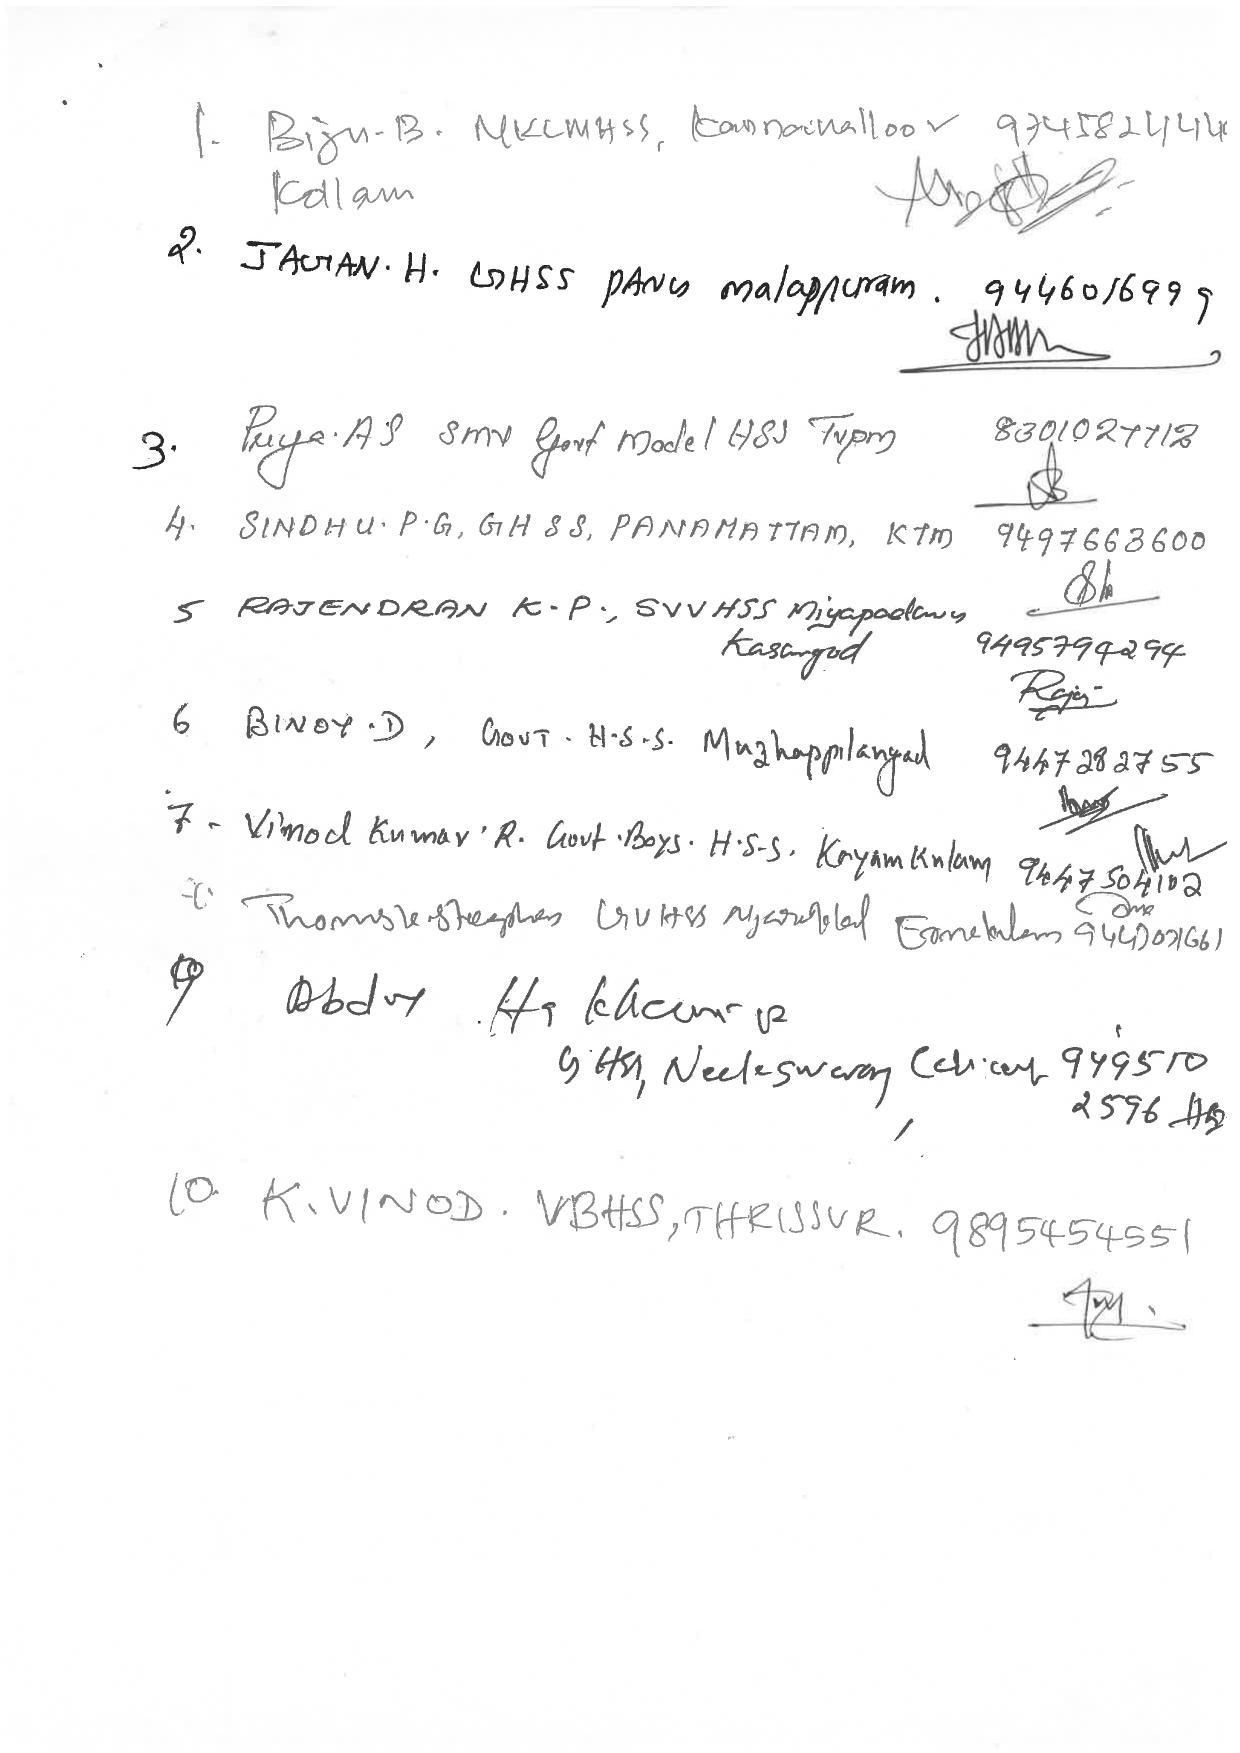 1. Biju-B. MKLMHSS, Kannanalloor 9745824144
Kollam
2. JAGIAN. H. GHSS PANG malappuram. 9446016999
3. Priya. A S SMV Govt Model HSS Tvpm 8301027712
4. SINDHU. P. G, GHSS, PANAMATTAM, KTM 9497663600
5 RAJENDRAN K. P., SVVHSS Miyapadavu
Kasargod 9495794294
6 BINOY. D, Govt. H.S.S. Muzhappilangad 9447282755
7 - Vinod Kumar. R. Govt. Boys. H.S.S. Kayamkulam 9447504102
GVHSS Ernakulam
9 Abdul
GHSS, Neeleswaram, Calicut 949510
2596
10. K. VINOD. VBHSS, THRISSUR. 9895454551